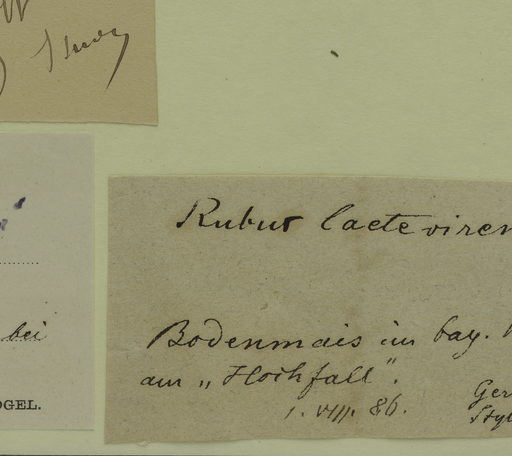 bei
OGEL.
Rubus laete viren
Bodenmais im bay.
am „Hochfall“.
1. VIII. 86.
Ger
Styl